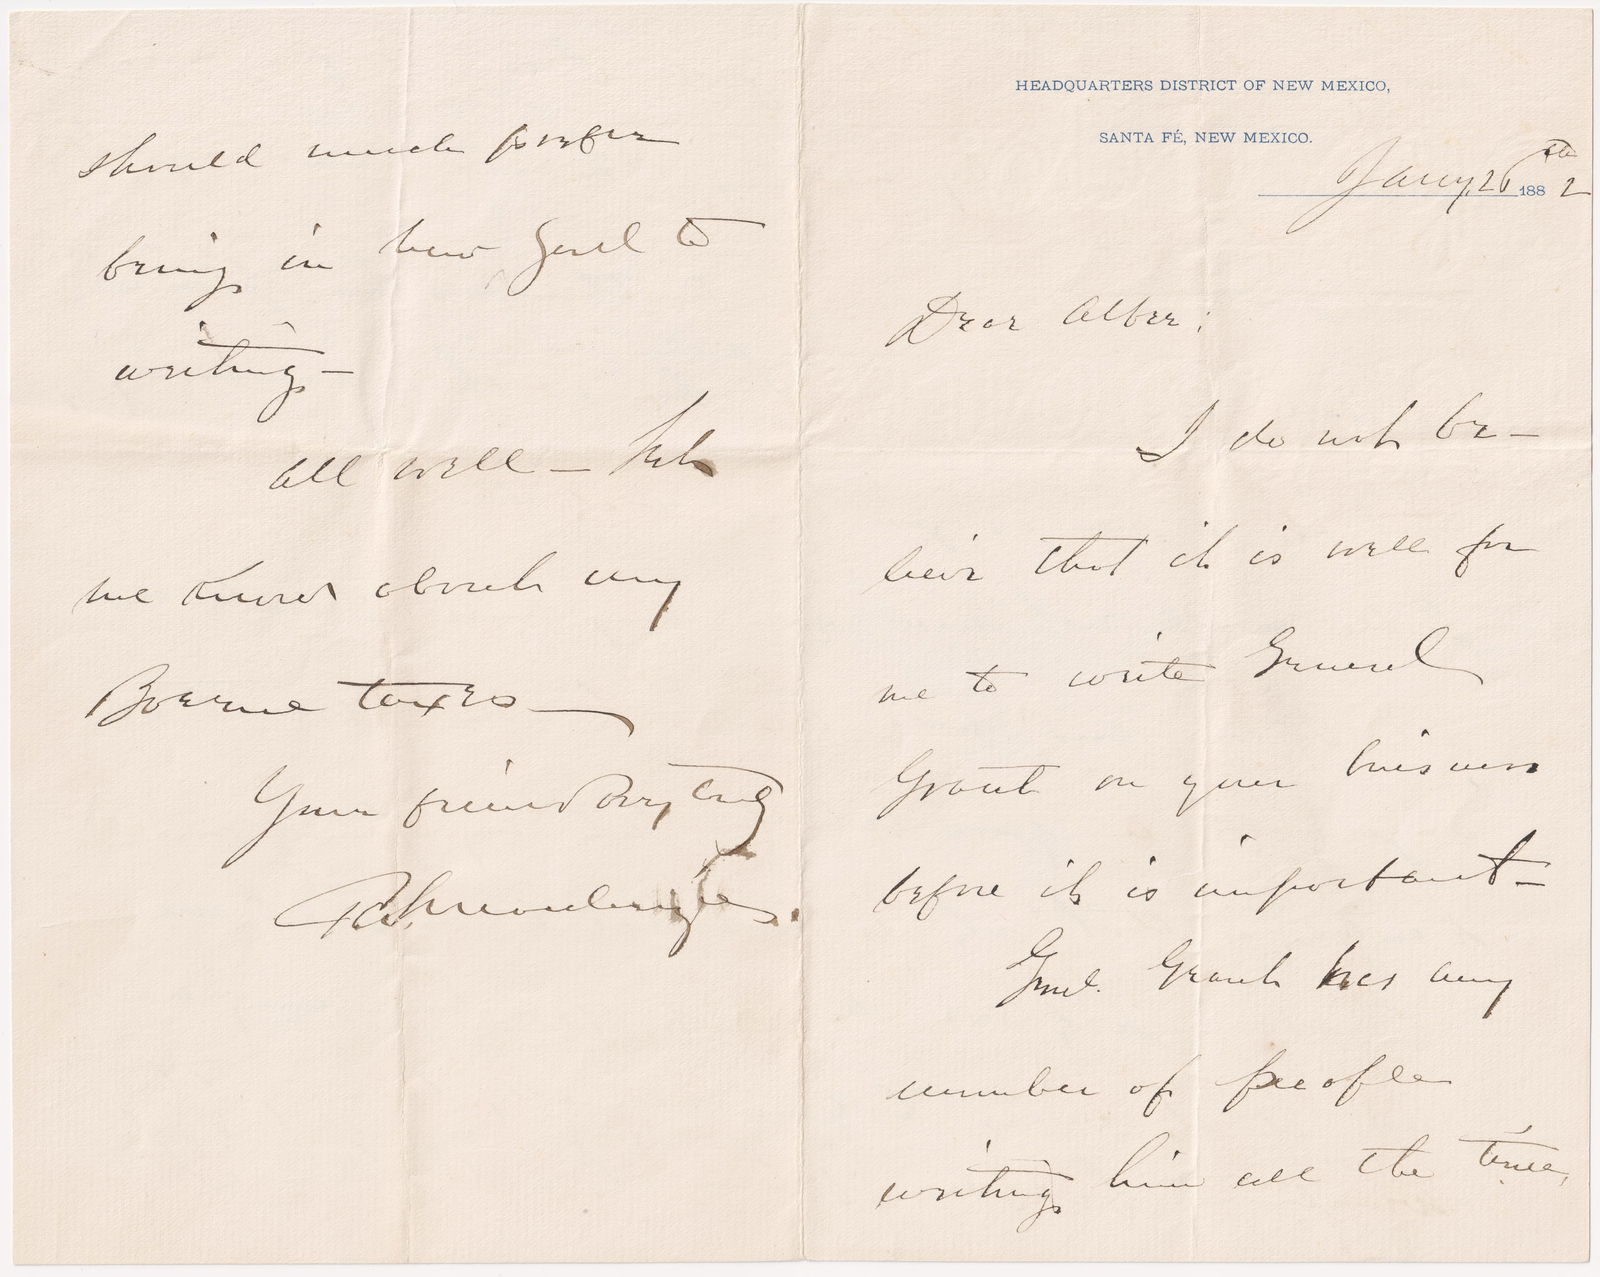 HEADQUARTERS DISTRICT OF NEW MEXICO,
SANTA FÉ, NEW MEXICO.
Jany, 26th 1882
Dear Alber:
I do not be-
leive that it is well for
me to write General
Grant on your business
before it is important-
Genl. Grant has any
number of people
writing him all the time,
should much prefer
being in him to
writing-
all well - Let
me know about my
Boerne taxes
Your friend Very truly